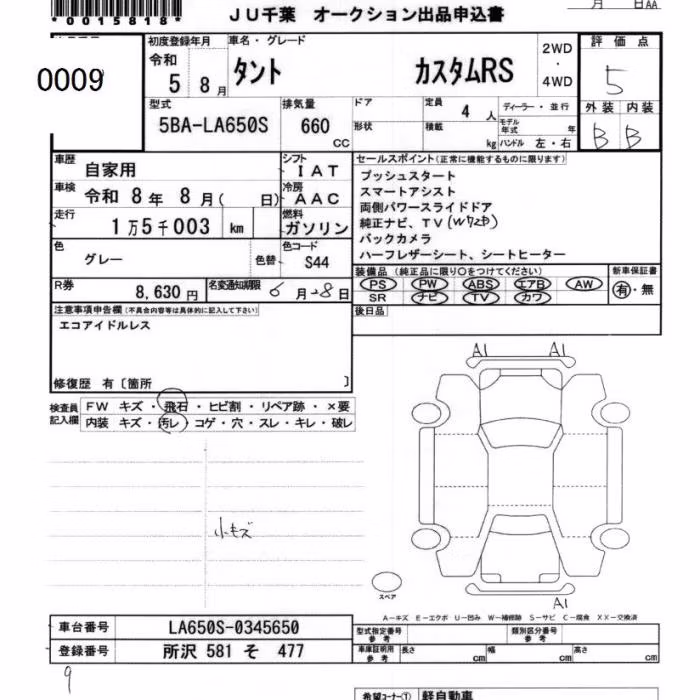 *0015818*
JU千葉 オークション出品申込書
月 日AA
0009
初度登録年月 車名・グレード
令和
5 8月 タント カスタムRS
2WD
・
4WD
評価点
5
外装 内装
B B
型式 排気量 ドア 定員 4人 ディーラー・並行
5BA-LA650S 660 CC
形状 積載 kg
モデル年式 年
ハンドル 左・右
車歴 自家用
シフト IAT
車検 令和 8年 8月( 日)
冷房 AAC
走行 1万5千003 km
燃料 ガソリン
色 グレー 色替
色コード S44
R券 8,630円
名変通知期限 6月28日
セールスポイント(正常に機能するものに限ります)
プッシュスタート
スマートアシスト
両側パワースライドドア
純正ナビ、TV
バックカメラ
ハーフレザーシート、シートヒーター
装備品(純正品に限り○をつけてください)
PS PW ABS エアB AW
SR ナビ TV カワ
新車保証書
有・無
後日品
注意事項申告欄(不具合内容等は具体的に記入して下さい)
エコアイドルレス
修復歴 有〔箇所 〕
検査員記入欄
FW キズ・飛石・ヒビ割・リペア跡・×要
内装 キズ・汚レ・コゲ・穴・スレ・キレ・破レ
小キズ
A1 A1
A1
スペア
A－キズ E－エクボ U－凹み W－補修跡 S－サビ C－腐食 XX－交換済
車台番号 LA650S-0345650
登録番号 所沢 581 そ 477
型式指定番号 参考 類別区分番号 参考
車庫証明用 参考 長さ cm 幅 cm 高さ cm
9
希望コーナー① 軽自動車